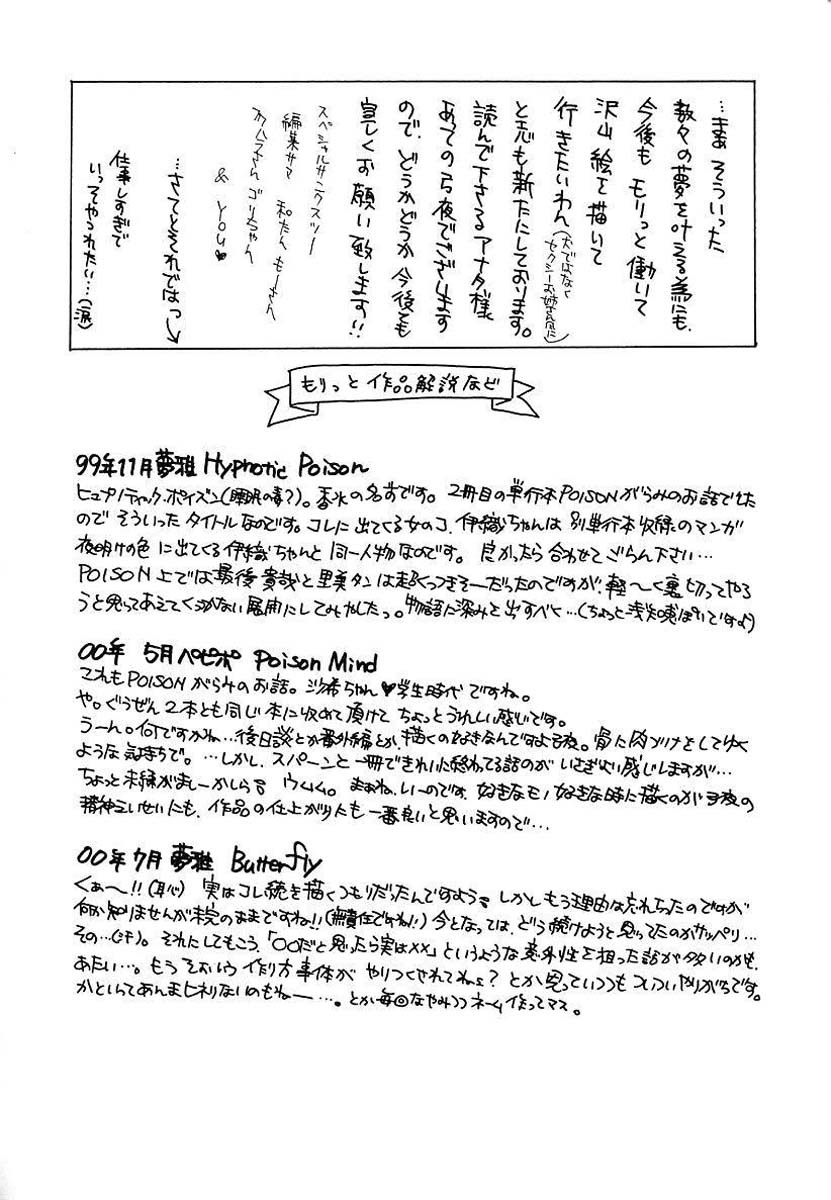 …まぁ そういった
数々の夢を叶える為にも、
今後も モリっと働いて
沢山 絵を描いて
行きたいわん(犬ではなく
セクシーお姉さん風に)
と志も新たにしております。
読んで下さるアナタ様
あっての弓夜でございます
ので、どうかどうか 今後とも
宜しくお願い致します!!
スペシャルサンクスツー
編集サマ 和たん もーさん
オクムラさん ゴリちゃん
& YOU♥
…さてとそれではっ↘
仕事しすぎで
いっそやつれたい…(涙)
もりっと 作品解説など
99年11月 夢雅 Hypnotic Poison
ヒュプノティック・ポイズン(睡眠の毒?)。香水の名前です。2冊目の単行本POISONがらみのお話でした
ので そういった タイトルなのです。コレに出てくる女のコ、伊織ちゃんは 別単行本収録のマンガ
夜明けの色 に出てくる伊織ちゃんと同一人物なのです。良かったら合わせてごらん下さい…
POISON上では最後 貴哉と里美タンは超くっつきそーだったのですが、軽〜く裏切ってやろ
うと思ってあえてくっつかない展開にしてみやしたっ。物語に深みを出すべく…(ちょっと浅知恵ぽいですよ)
00年 5月 ペピポ Poison Mind
これもPOISONがらみのお話。沙希ちゃん♥学生時代ですね。
や。ぐうぜん2本とも同じ本に収めて頂けて ちょっとうれしい感じです。
うーん。何ですかね…後日談とか番外編とか、描くの好きなんですよ弓夜。骨に肉づけをしてゆく
ような気持ちで。…しかし、スパーンと一冊できれいに終わってる話のが いさぎよい感じしますが…
ちょっと未練がましーかしら。ウムム。まぁね、いーのです、好きなモノ 好きな時に描くのが弓夜の
精神えいせいにも、作品の仕上がりにも 一番良いと思いますので…
00年7月 夢雅 Butterfly
くぁ〜!!(恥) 実はコレ続きを描くつもりだったんですよう。しかしもう理由は忘れちったのですが
何か知りませんが未完のままですね!!(無責任ですね!) 今となっては、どう続けようと思ってたのかサッパリ…
その…(汗)。それにしてもこう、「○○だと思ったら実は××」というような意外性を狙った話が多いのかも、
あたい…。もうそういう作り方事体が やりつくされてねぇ? とか思っていつもついついやりがちです。
かといってあんまヒネリないのもねー…。とか毎回なやみつつネーム作ってマス。